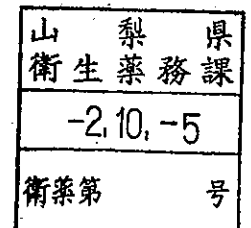 山梨県
衛生薬務課
-2.10.-5
衛薬第 号